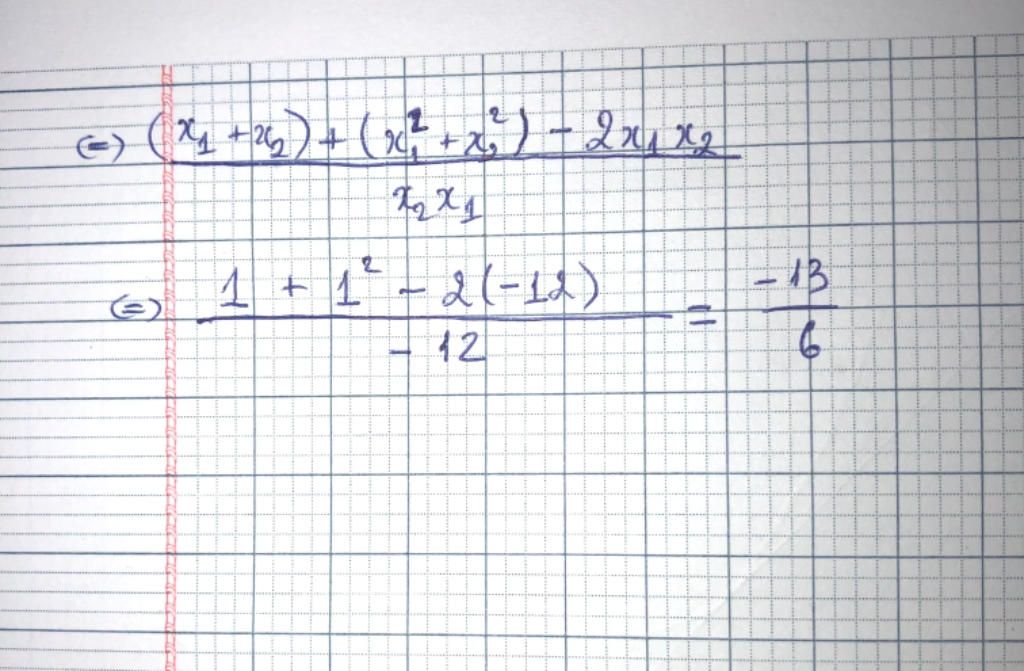 (=) ((x₁ + x₂) + (x₁² + x₂²) - 2x₁x₂) / (x₂x₁)
(=) (1 + 1² - 2(-12)) / (-12) = -13/6